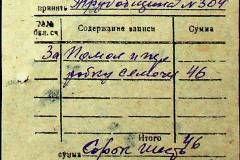 принять Трубовщина № 304
№№ бал. сч
Содержание записи
Сумма
За Помол и пе
робку семочек 46
Итого 46
сумма Сорок шесть